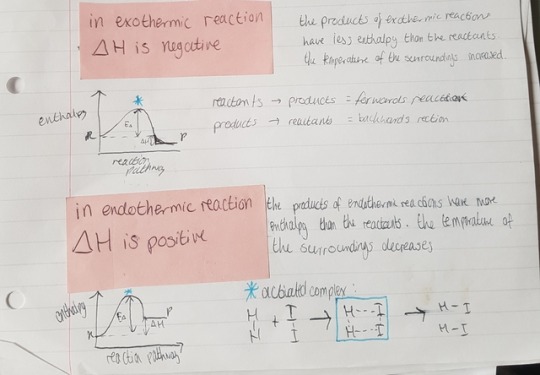 in exothermic reaction
ΔH is negative
the products of exothermic reactions
have less enthalpy than the reactants
the temperature of the surroundings increased
enthalpy
*
R
Ea
ΔH
P
reaction
pathway
reactants → products = forwards reaction
products → reactants = backwards rection
in endothermic reaction
ΔH is positive
the products of endothermic reactions have more
enthalpy than the reactants. the temperature of
the surroundings decreases
enthalpy
*
R
Ea
ΔH
P
reaction pathway
* activated complex:
H I H---I H-I
+ → →
H I H---I H-I